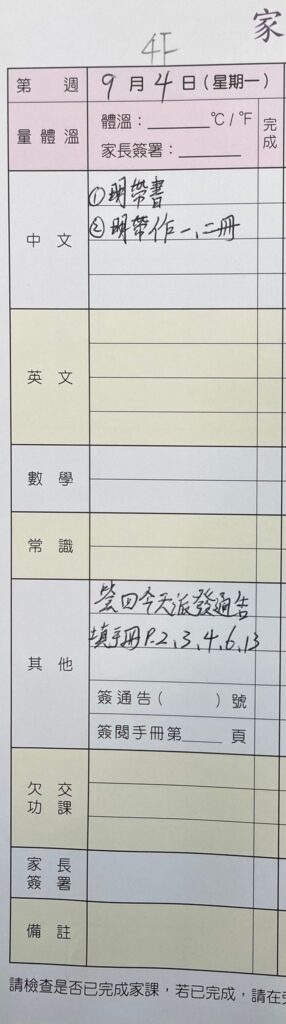 家
4F
第 週 9月4日(星期一)
量體溫 體溫:________℃/℉ 完成
家長簽署:________
中文 ①明帶書
②明帶作一、二冊
英文
數學
常識
其他 簽回今天派發通告
填手冊P.2、3、4、6、13
簽通告( )號
簽閱手冊第_____頁
欠交功課
家長簽署
備註
請檢查是否已完成家課,若已完成,請在